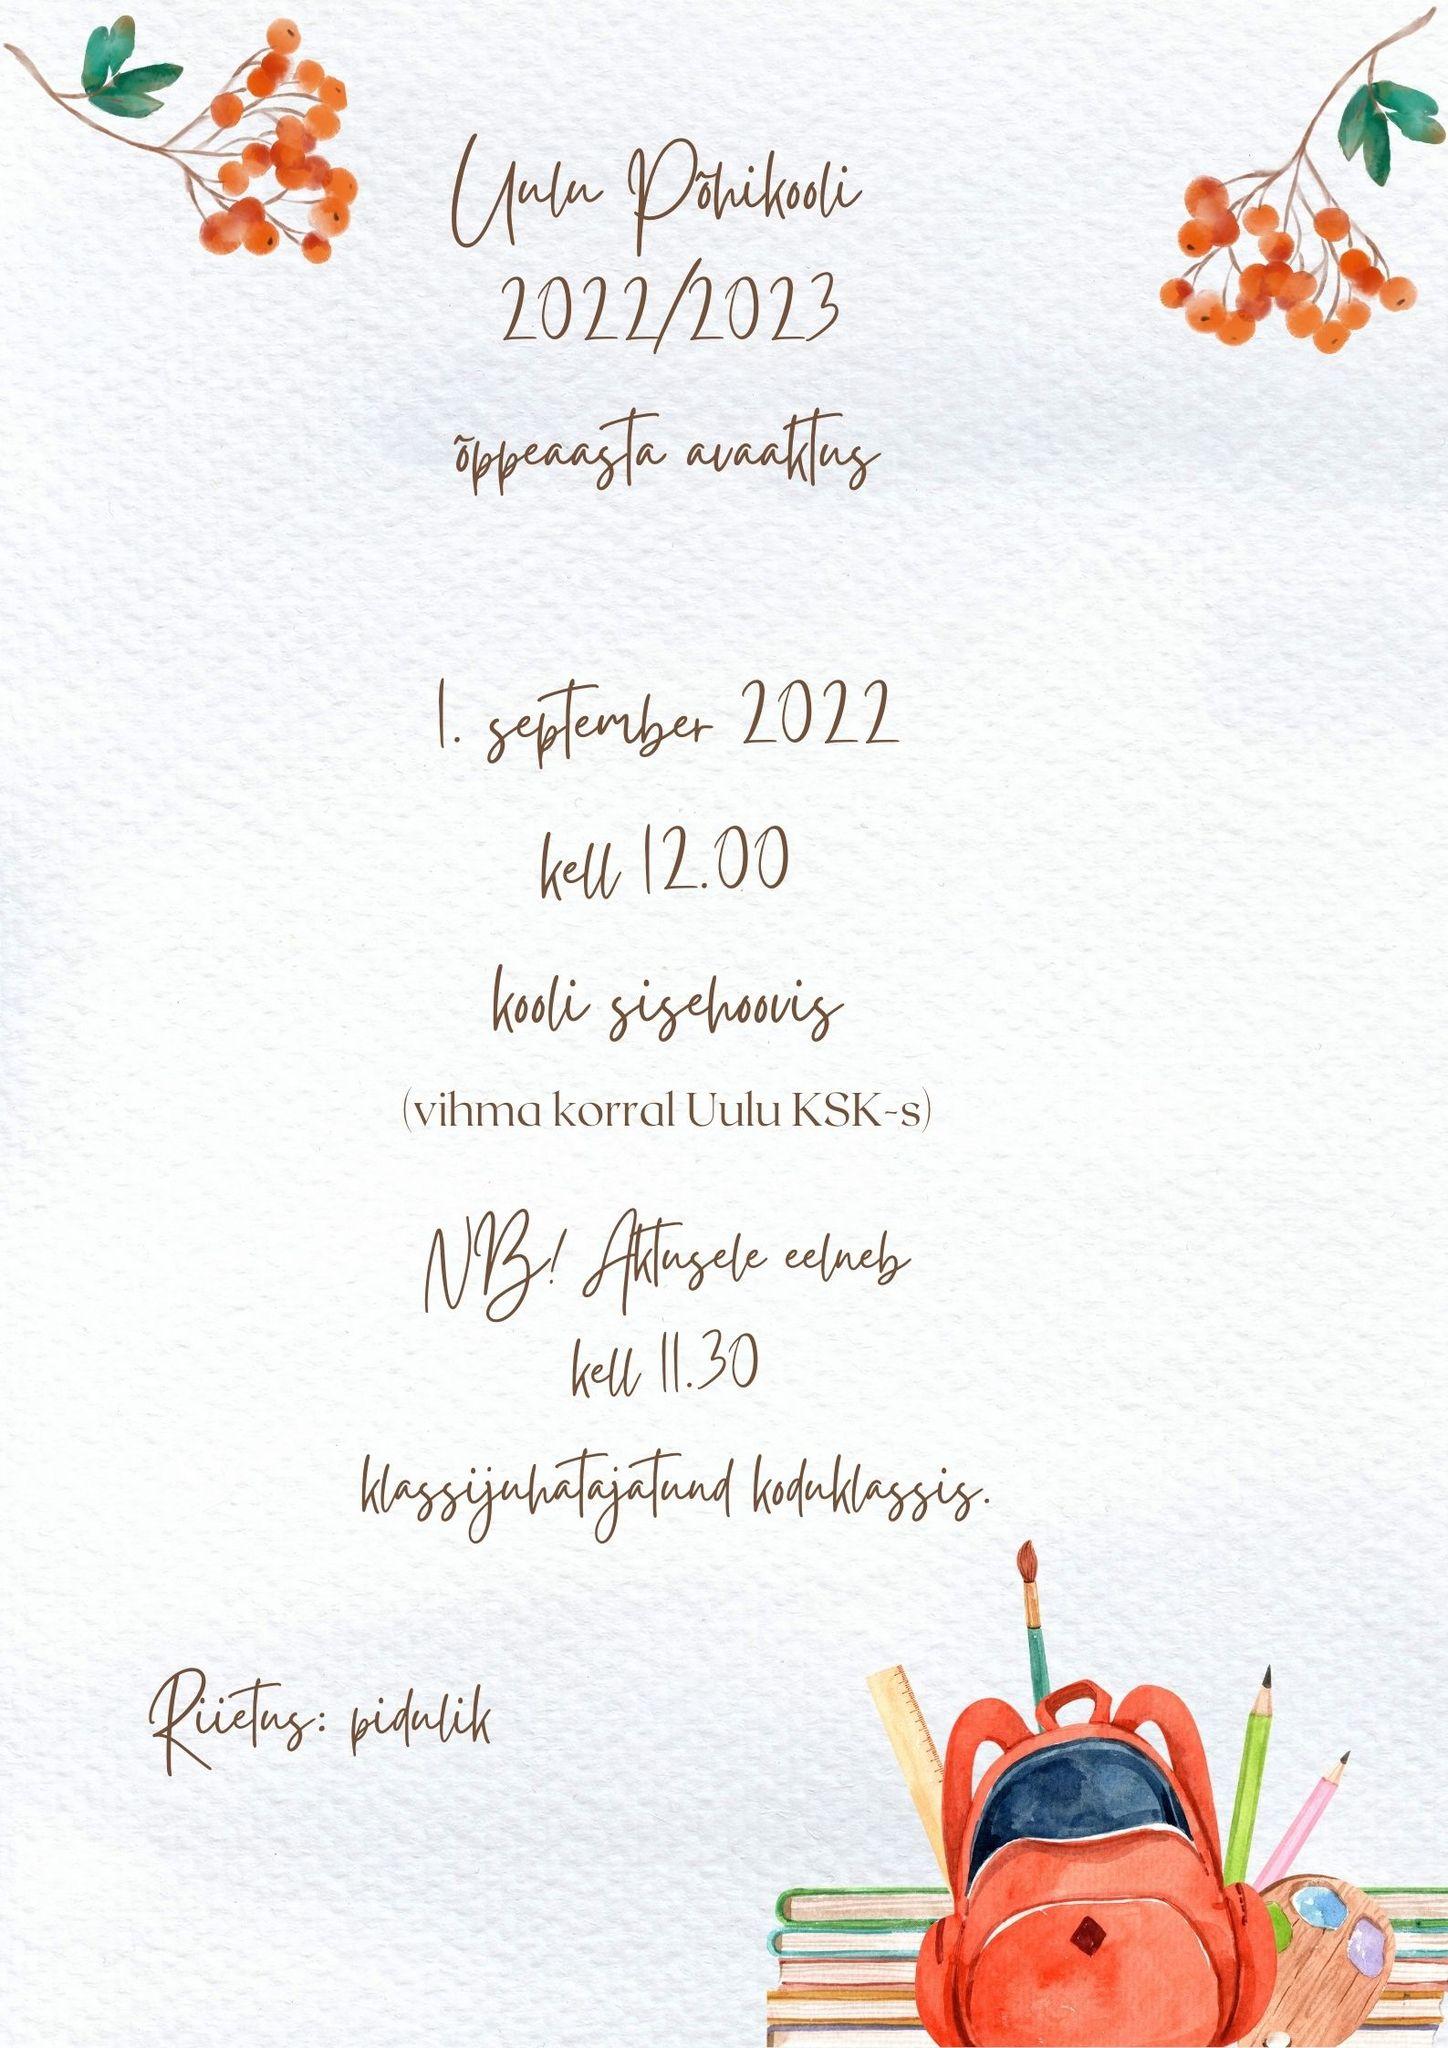 Uulu Põhikooli
2022/2023
õppeaasta avaaktus
1. september 2022
kell 12.00
kooli sisehoovis
(vihma korral Uulu KSK-s)
NB! Aktusele eelneb
kell 11.30
klassijuhatajatund koduklassis.
Riietus: pidulik